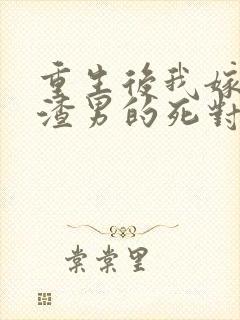 重生後我嫁
渣男的死對
棠棠里